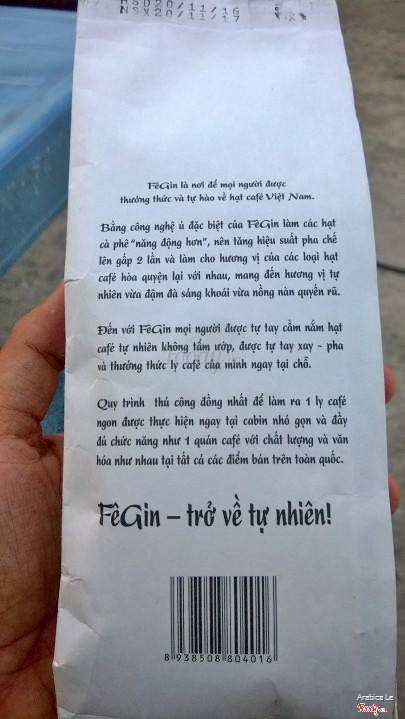 HSD20/11/16
NSX20/11/17
FêGin là nơi để mọi người được
thưởng thức và tự hào về hạt café Việt Nam.
Bằng công nghệ ủ đặc biệt của FêGin làm các hạt
cà phê "năng động hơn", nên tăng hiệu suất pha chế
lên gấp 2 lần và làm cho hương vị của các loại hạt
café hòa quyện lại với nhau, mang đến hương vị tự
nhiên vừa đậm đà sảng khoái vừa nồng nàn quyến rũ.
Đến với FêGin mọi người được tự tay cầm nắm hạt
café tự nhiên không tẩm ướp, được tự tay xay - pha
và thưởng thức ly café của mình ngay tại chỗ.
Quy trình thủ công đồng nhất để làm ra 1 ly café
ngon được thực hiện ngay tại cabin nhỏ gọn và đầy
đủ chức năng như 1 quán café với chất lượng và văn
hóa như nhau tại tất cả các điểm bán trên toàn quốc.
FêGin – trở về tự nhiên!
8 938508 804016
Arabica Le
Foody.vn